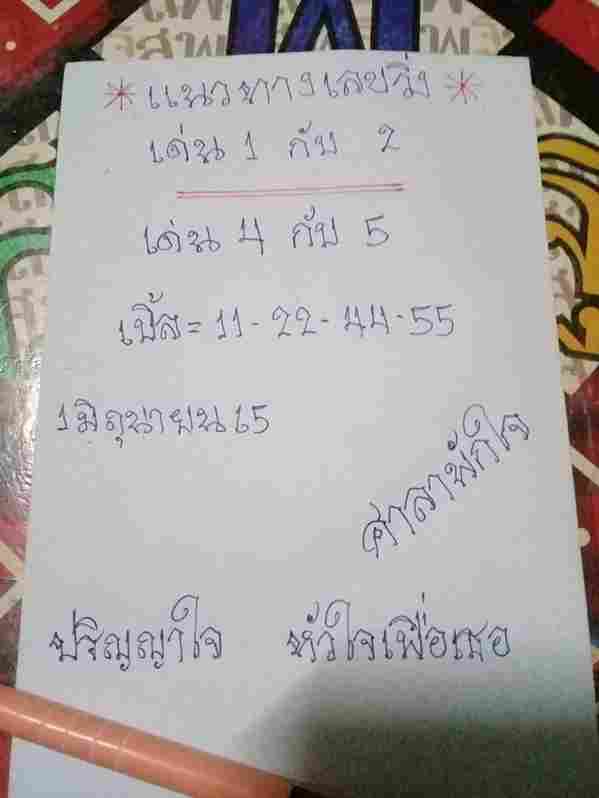 * แนวทางเลขวิ่ง *
เด่น 1 กับ 2
เด่น 4 กับ 5
เบิ้ล = 11 - 22 - 44 - 55
1 มิถุนายน 65
ศาลาพักใจ
ปริญญาใจ หัวใจเพื่อเธอ